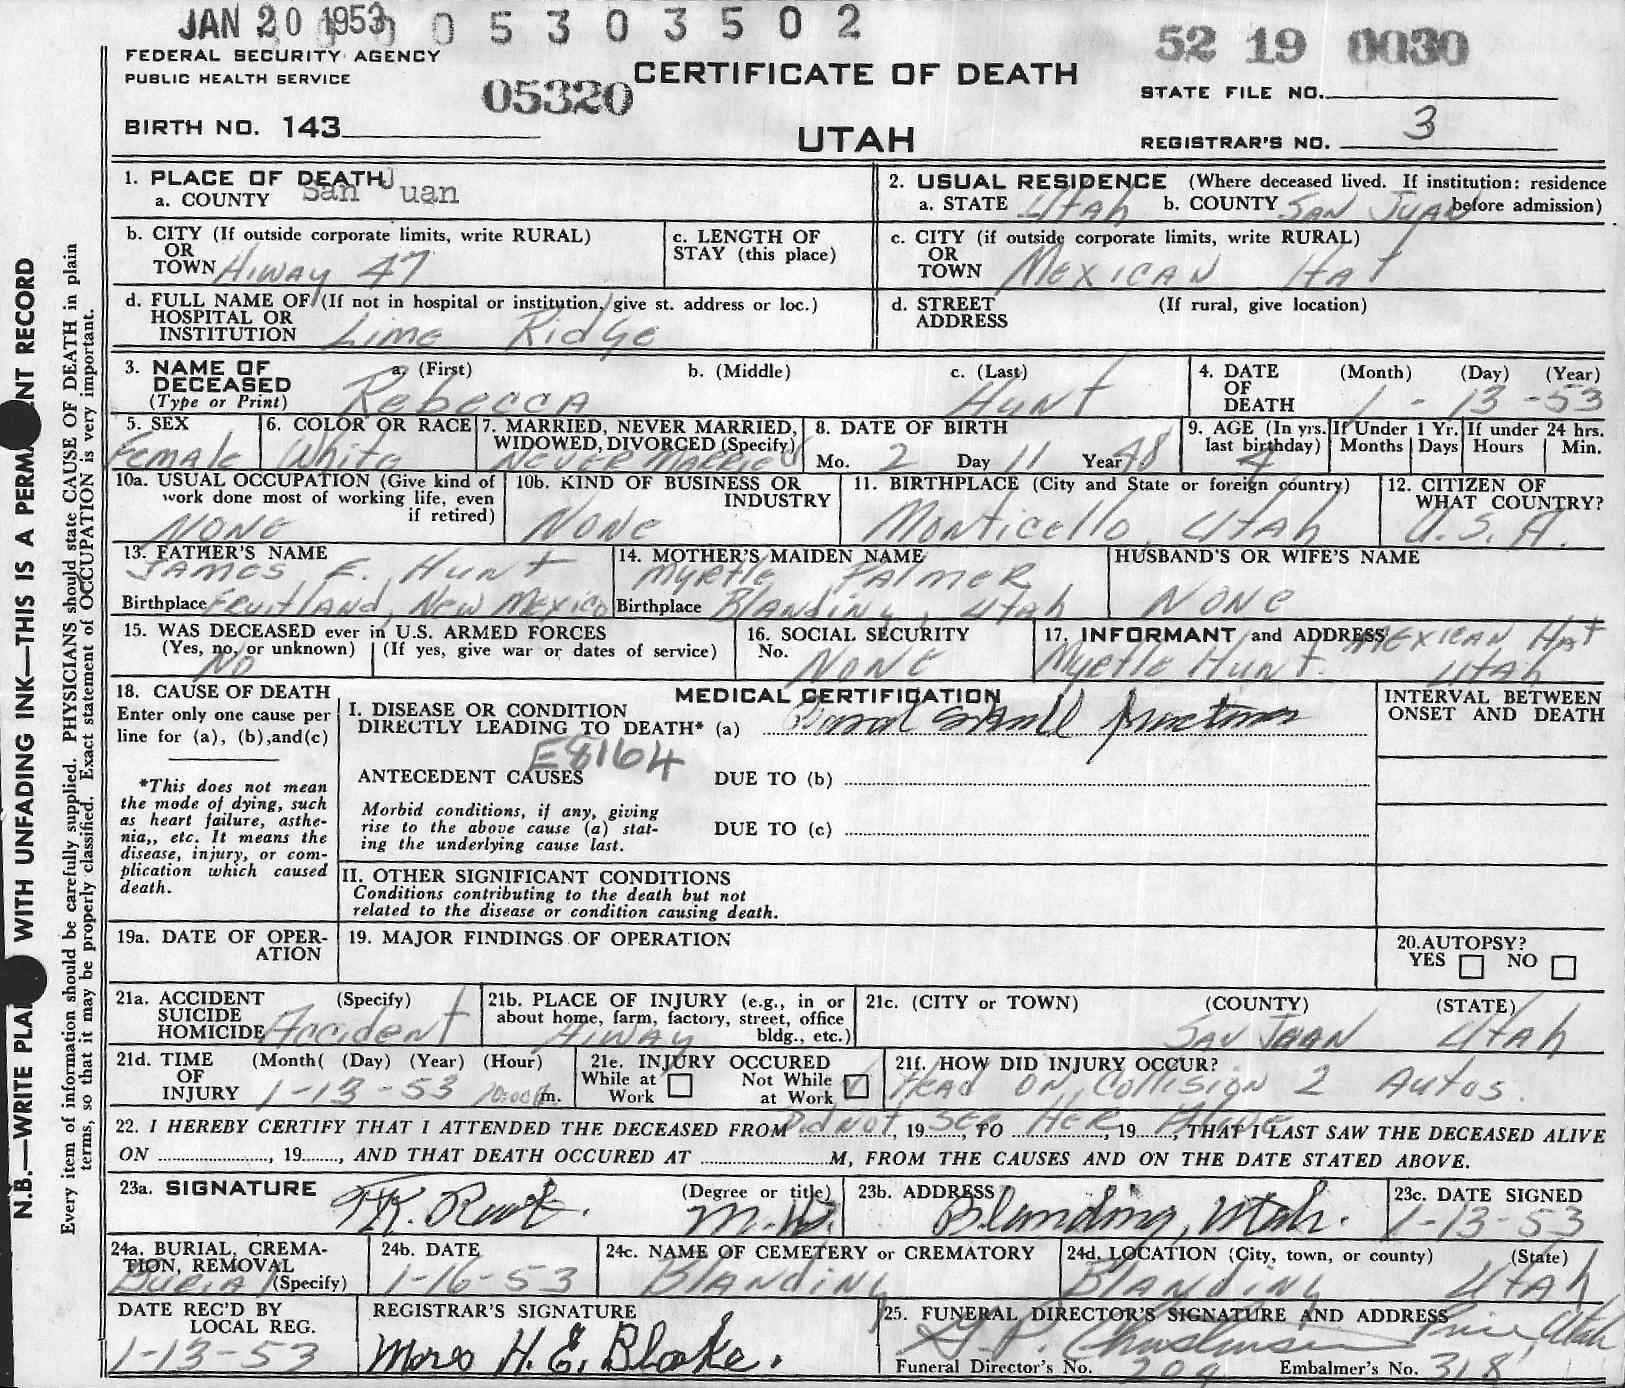 JAN 20 1953 0 5 3 0 3 5 0 2
52 19 0030
FEDERAL SECURITY AGENCY
PUBLIC HEALTH SERVICE
05320
CERTIFICATE OF DEATH
STATE FILE NO.
BIRTH NO. 143
UTAH
REGISTRAR'S NO. 3
1. PLACE OF DEATH
a. COUNTY San Juan
2. USUAL RESIDENCE (Where deceased lived. If institution: residence before admission)
a. STATE Utah b. COUNTY San Juan
b. CITY (If outside corporate limits, write RURAL)
OR
TOWN Hiway 47
c. LENGTH OF
STAY (this place)
c. CITY (if outside corporate limits, write RURAL)
OR
TOWN Mexican Hat
d. FULL NAME OF (If not in hospital or institution, give st. address or loc.)
HOSPITAL OR
INSTITUTION Lime Ridge
d. STREET (If rural, give location)
ADDRESS
3. NAME OF
DECEASED
(Type or Print)
a. (First) b. (Middle) c. (Last)
Rebecca Hunt
4. DATE (Month) (Day) (Year)
OF
DEATH 1 - 13 - 53
5. SEX
Female
6. COLOR OR RACE
White
7. MARRIED, NEVER MARRIED,
WIDOWED, DIVORCED (Specify)
NEVER MARRIED
8. DATE OF BIRTH
Mo. 2 Day 11 Year 48
9. AGE (In yrs.
last birthday)
4
If Under 1 Yr.
Months Days
If under 24 hrs.
Hours Min.
10a. USUAL OCCUPATION (Give kind of
work done most of working life, even
if retired)
NONE
10b. KIND OF BUSINESS OR
INDUSTRY
NONE
11. BIRTHPLACE (City and State or foreign country)
Monticello, Utah
12. CITIZEN OF
WHAT COUNTRY?
U.S.A.
13. FATHER'S NAME
JAMES E. HUNT
Birthplace Fruitland, New Mexico
14. MOTHER'S MAIDEN NAME
Myrtle Palmer
Birthplace Blanding, Utah
HUSBAND'S OR WIFE'S NAME
NONE
15. WAS DECEASED ever in U.S. ARMED FORCES
(Yes, no, or unknown) (If yes, give war or dates of service)
NO
16. SOCIAL SECURITY
No.
NONE
17. INFORMANT and ADDRESS MEXICAN HAT
Myrtle Hunt. Utah
18. CAUSE OF DEATH
Enter only one cause per
line for (a), (b),and(c)
*This does not mean
the mode of dying, such
as heart failure, asthe-
nia,, etc. It means the
disease, injury, or com-
plication which caused
death.
MEDICAL CERTIFICATION
I. DISEASE OR CONDITION
DIRECTLY LEADING TO DEATH* (a) Basal Skull fracture
E8164
ANTECEDENT CAUSES DUE TO (b)
Morbid conditions, if any, giving
rise to the above cause (a) stat-
ing the underlying cause last.
DUE TO (c)
II. OTHER SIGNIFICANT CONDITIONS
Conditions contributing to the death but not
related to the disease or condition causing death.
INTERVAL BETWEEN
ONSET AND DEATH
19a. DATE OF OPER-
ATION
19. MAJOR FINDINGS OF OPERATION
20.AUTOPSY?
YES NO
21a. ACCIDENT (Specify)
SUICIDE
HOMICIDE Accident
21b. PLACE OF INJURY (e.g., in or
about home, farm, factory, street, office
bldg., etc.)
Hiway
21c. (CITY or TOWN) (COUNTY) (STATE)
San Juan Utah
21d. TIME (Month( (Day) (Year) (Hour)
OF
INJURY 1-13-53 m.
21e. INJURY OCCURED
While at
Work
Not While
at Work
21f. HOW DID INJURY OCCUR?
HEAD ON Collision 2 Autos.
22. I HEREBY CERTIFY THAT I ATTENDED THE DECEASED FROM Did not SEE HER Alive, 19......, TO ............, 19......, THAT I LAST SAW THE DECEASED ALIVE
ON ............, 19......, AND THAT DEATH OCCURED AT ............M, FROM THE CAUSES AND ON THE DATE STATED ABOVE.
23a. SIGNATURE (Degree or title)
M.D.
23b. ADDRESS
Blanding, Utah.
23c. DATE SIGNED
1-13-53
24a. BURIAL, CREMA-
TION, REMOVAL
Burial (Specify)
24b. DATE
1-16-53
24c. NAME OF CEMETERY or CREMATORY
Blanding
24d. LOCATION (City, town, or county) (State)
Blanding Utah
DATE REC'D BY
LOCAL REG.
1-13-53
REGISTRAR'S SIGNATURE
H. E. Blake.
25. FUNERAL DIRECTOR'S SIGNATURE AND ADDRESS
Price, Utah
Funeral Director's No. 209 Embalmer's No. 318
N.B.—WRITE PLAI WITH UNFADING INK—THIS IS A PERMA NT RECORD
Every item of information should be carefully supplied. PHYSICIANS should state CAUSE OF DEATH in plain
terms, so that it may be properly classified. Exact statement of OCCUPATION is very important.